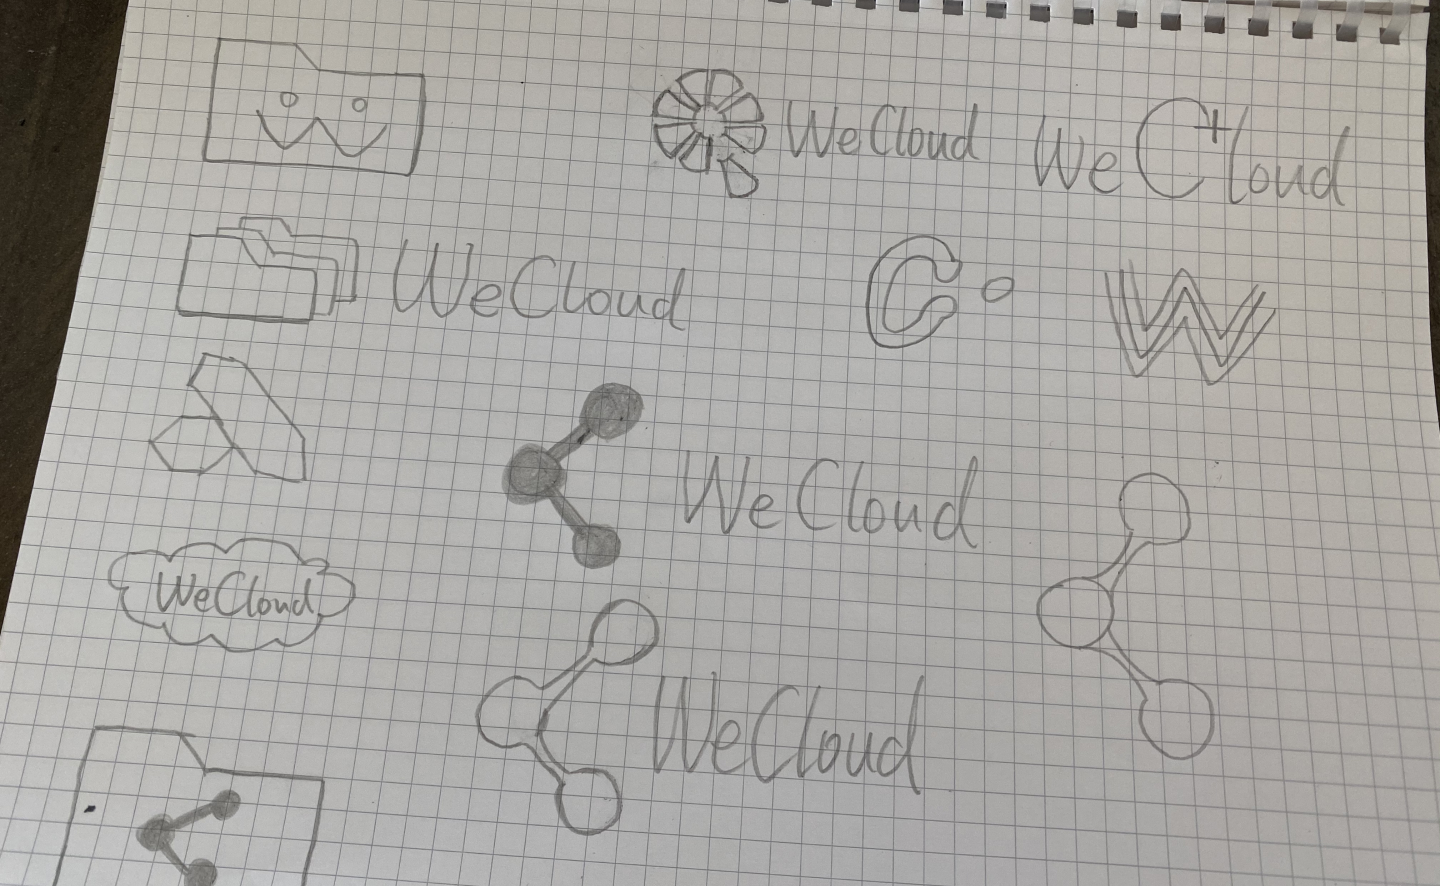 WeCloud
We C+loud
WeCloud
C
W
WeCloud
WeCloud
WeCloud